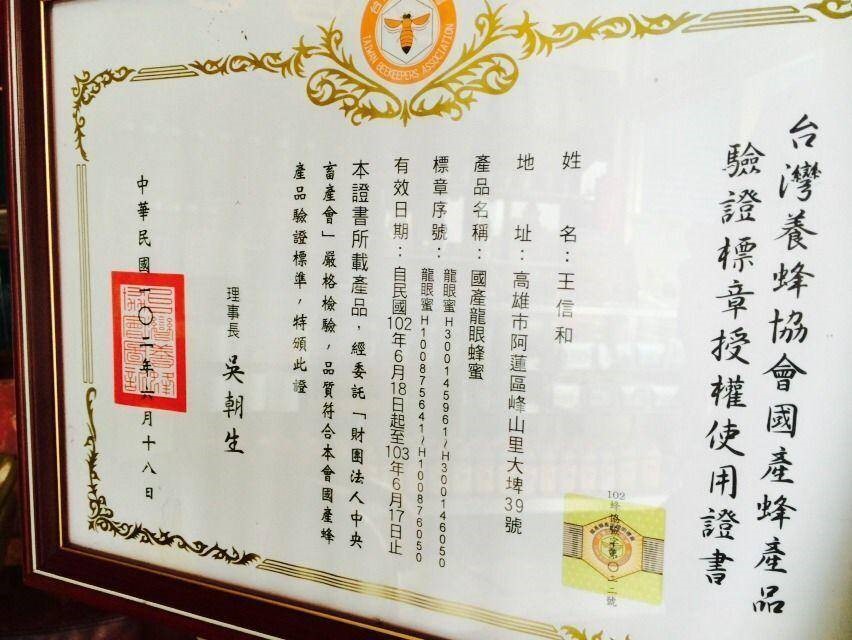 台
TAIWAN BEEKEEPERS ASSOCIATION
台灣養蜂協會國產蜂產品
驗證標章授權使用證書
102蜂協驗字第〇二二號
姓 名：王信和
地 址：高雄市阿蓮區峰山里大埤39號
產品名稱：國產龍眼蜂蜜
標章序號：龍眼蜜H300145961~H300146050
龍眼蜜H100875641~H100876050
有效日期：自民國102年6月18日起至103年6月17日止
本證書所載產品，經委託「財團法人中央
畜產會」嚴格檢驗，品質符合本會國產蜂
產品驗證標準，特頒此證
理事長 吳朝生
中華民國一〇二年六月十八日